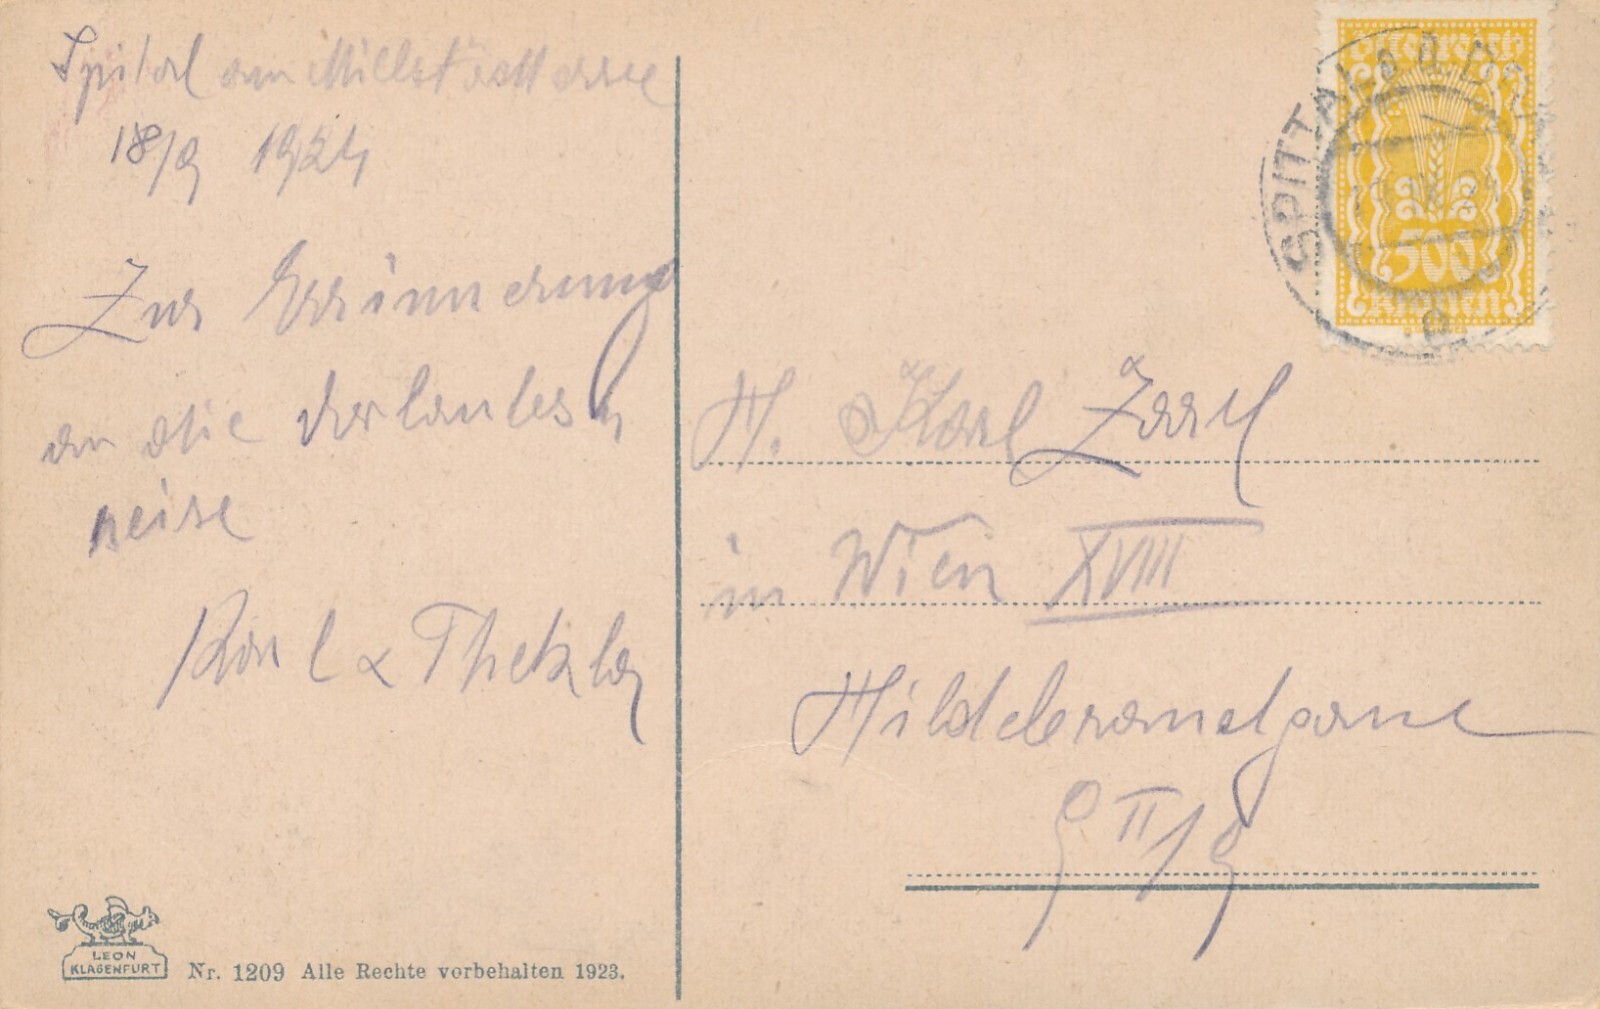 Spital am Millstättersee
18/9 1924
Zur Errinnerung
an die
reise
Karl
H. Karl
in Wien XVIII
Hildebrandgasse
9 II/9
Österreich
500
Kronen
SPITTAL
LEON
KLAGENFURT
Nr. 1209 Alle Rechte vorbehalten 1923.